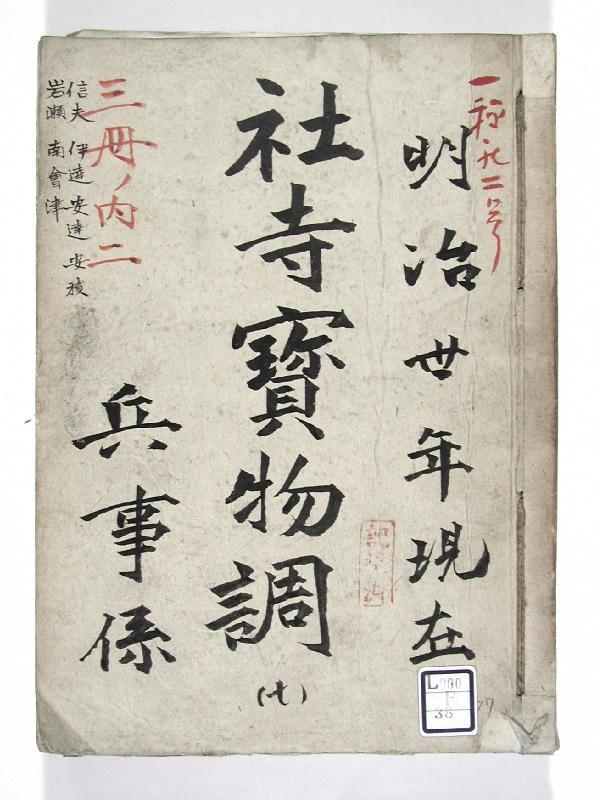 一種九二号
明治卅年現在
社寺寳物調
(七)
兵事係
三冊ノ内二
信夫 伊達 安達 安積
岩瀬 南會津
L090
F
38
77